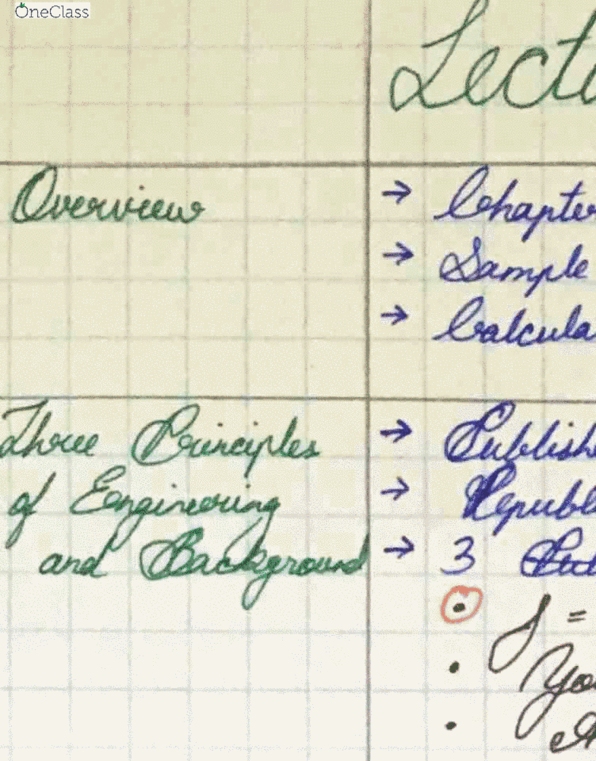 OneClass
Lectu
Overview
→ Chapter
→ Sample
→ Calcula
Three Principles
of Eengineering
and Background
→ Publishe
→ Republ
→ 3
• J =
• You
•